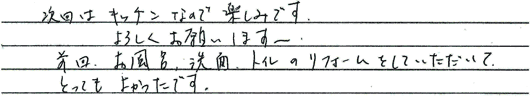 次回はキッチンなので楽しみです.
よろしくお願いします〜
前回. お風呂. 洗面. トイレのリフォームをしていただいて.
とってもよかったです.